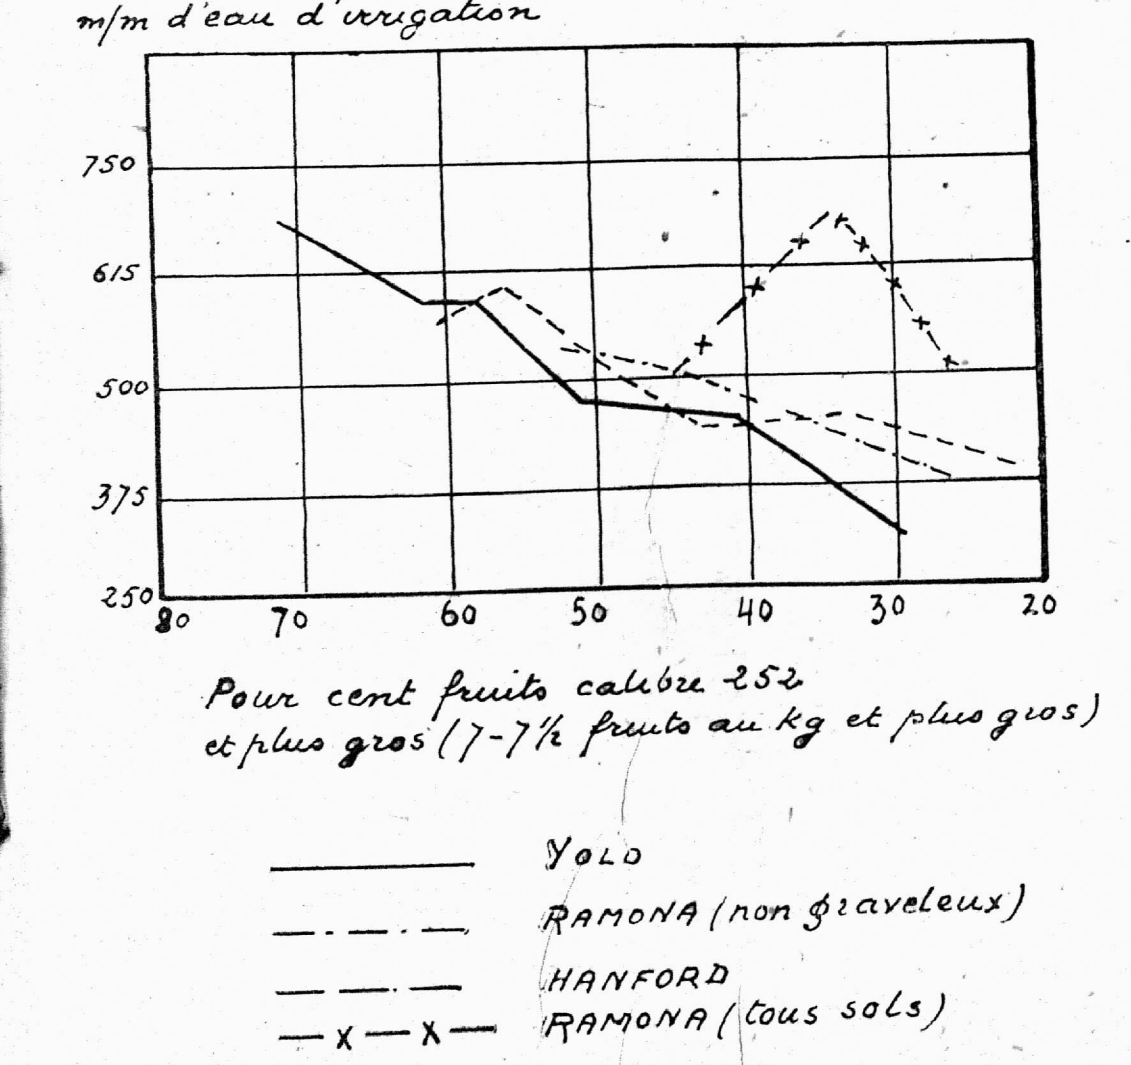 m/m d'eau d'irrigation
750
615
500
375
250
80 70 60 50 40 30 20
Pour cent fruits calibre 252
et plus gros (7-7½ fruits au kg et plus gros)
YOLO
RAMONA (non graveleux)
HANFORD
RAMONA (tous sols)